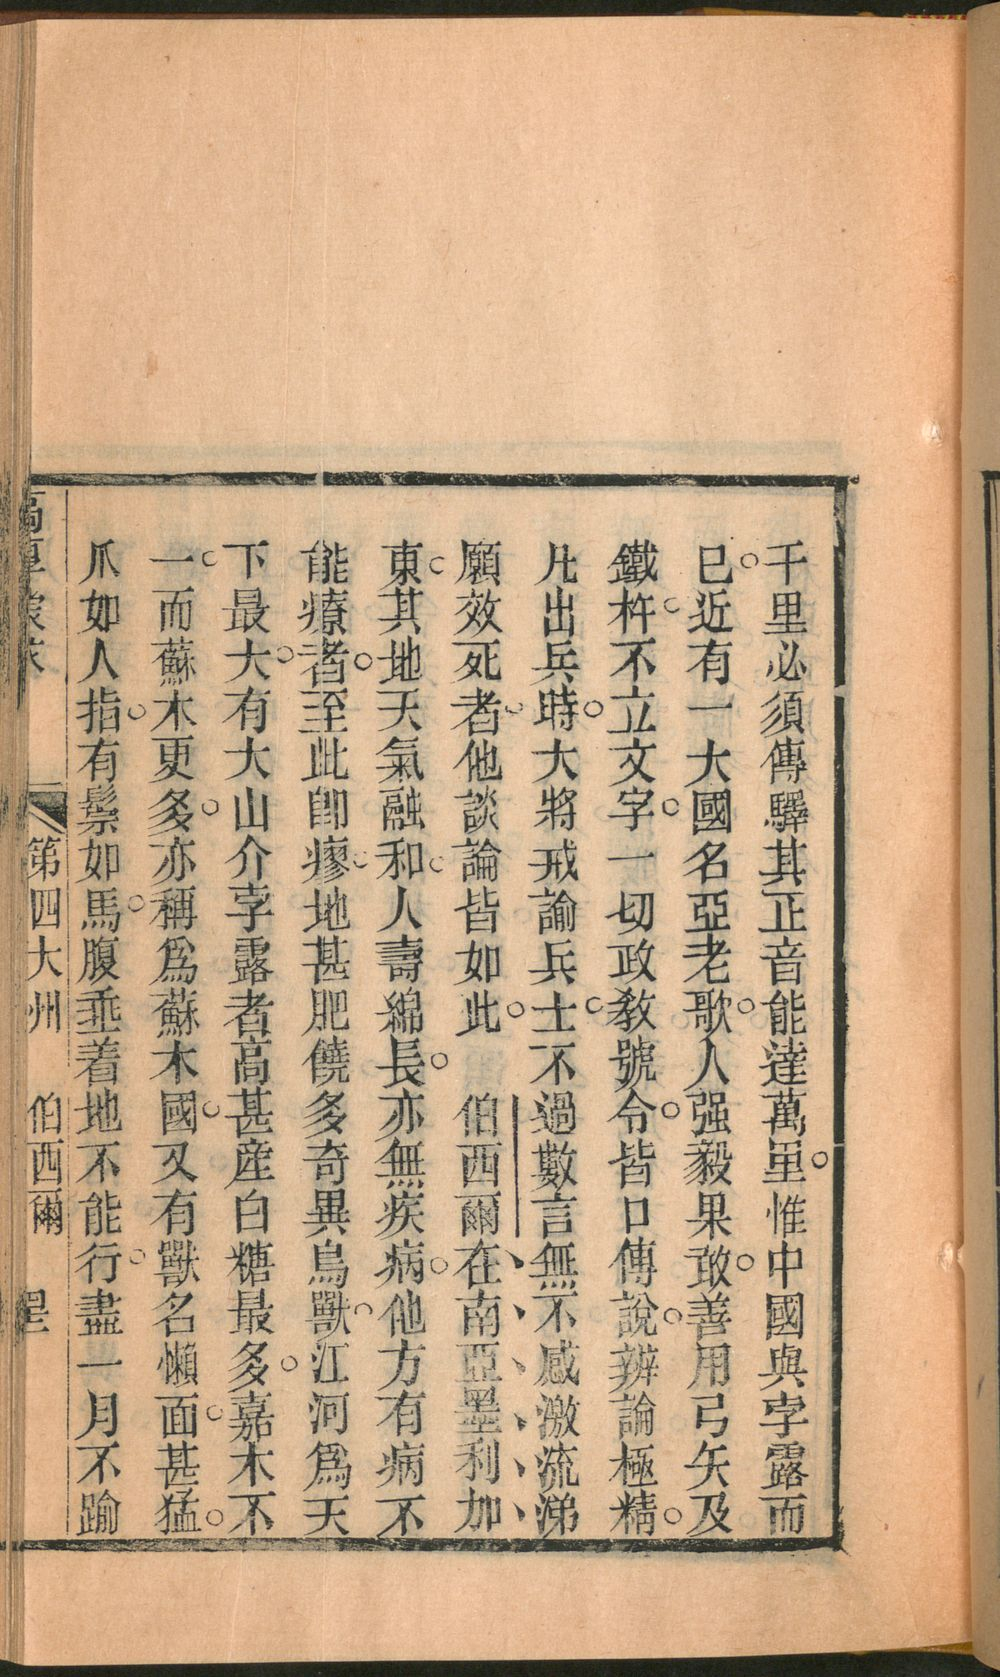 千里必須傳驛其正音能達萬里。惟中國與孛露而
已。近有一大國名亞老歌。人强毅果敢。善用弓矢及
鐵杵。不立文字。一切政教號令。皆口傳說。辨論極精。
凡出兵時。大將戒諭兵士。不過數言無不感激流涕
願效死者。他談論皆如此。 伯西爾在南亞墨利加
東。其地天氣融和。人壽綿長。亦無疾病。他方有病不
能療者。至此卽瘳。地甚肥饒多奇異鳥獸。江河爲天
下最大。有大山介孛露者高甚産白糖最多。嘉木不
一。而蘇木更多。亦稱爲蘇木國。又有獸名懶面。甚猛。
爪如人指。有鬃如馬。腹垂着地不能行。盡一月不踰
第四大州 伯西爾